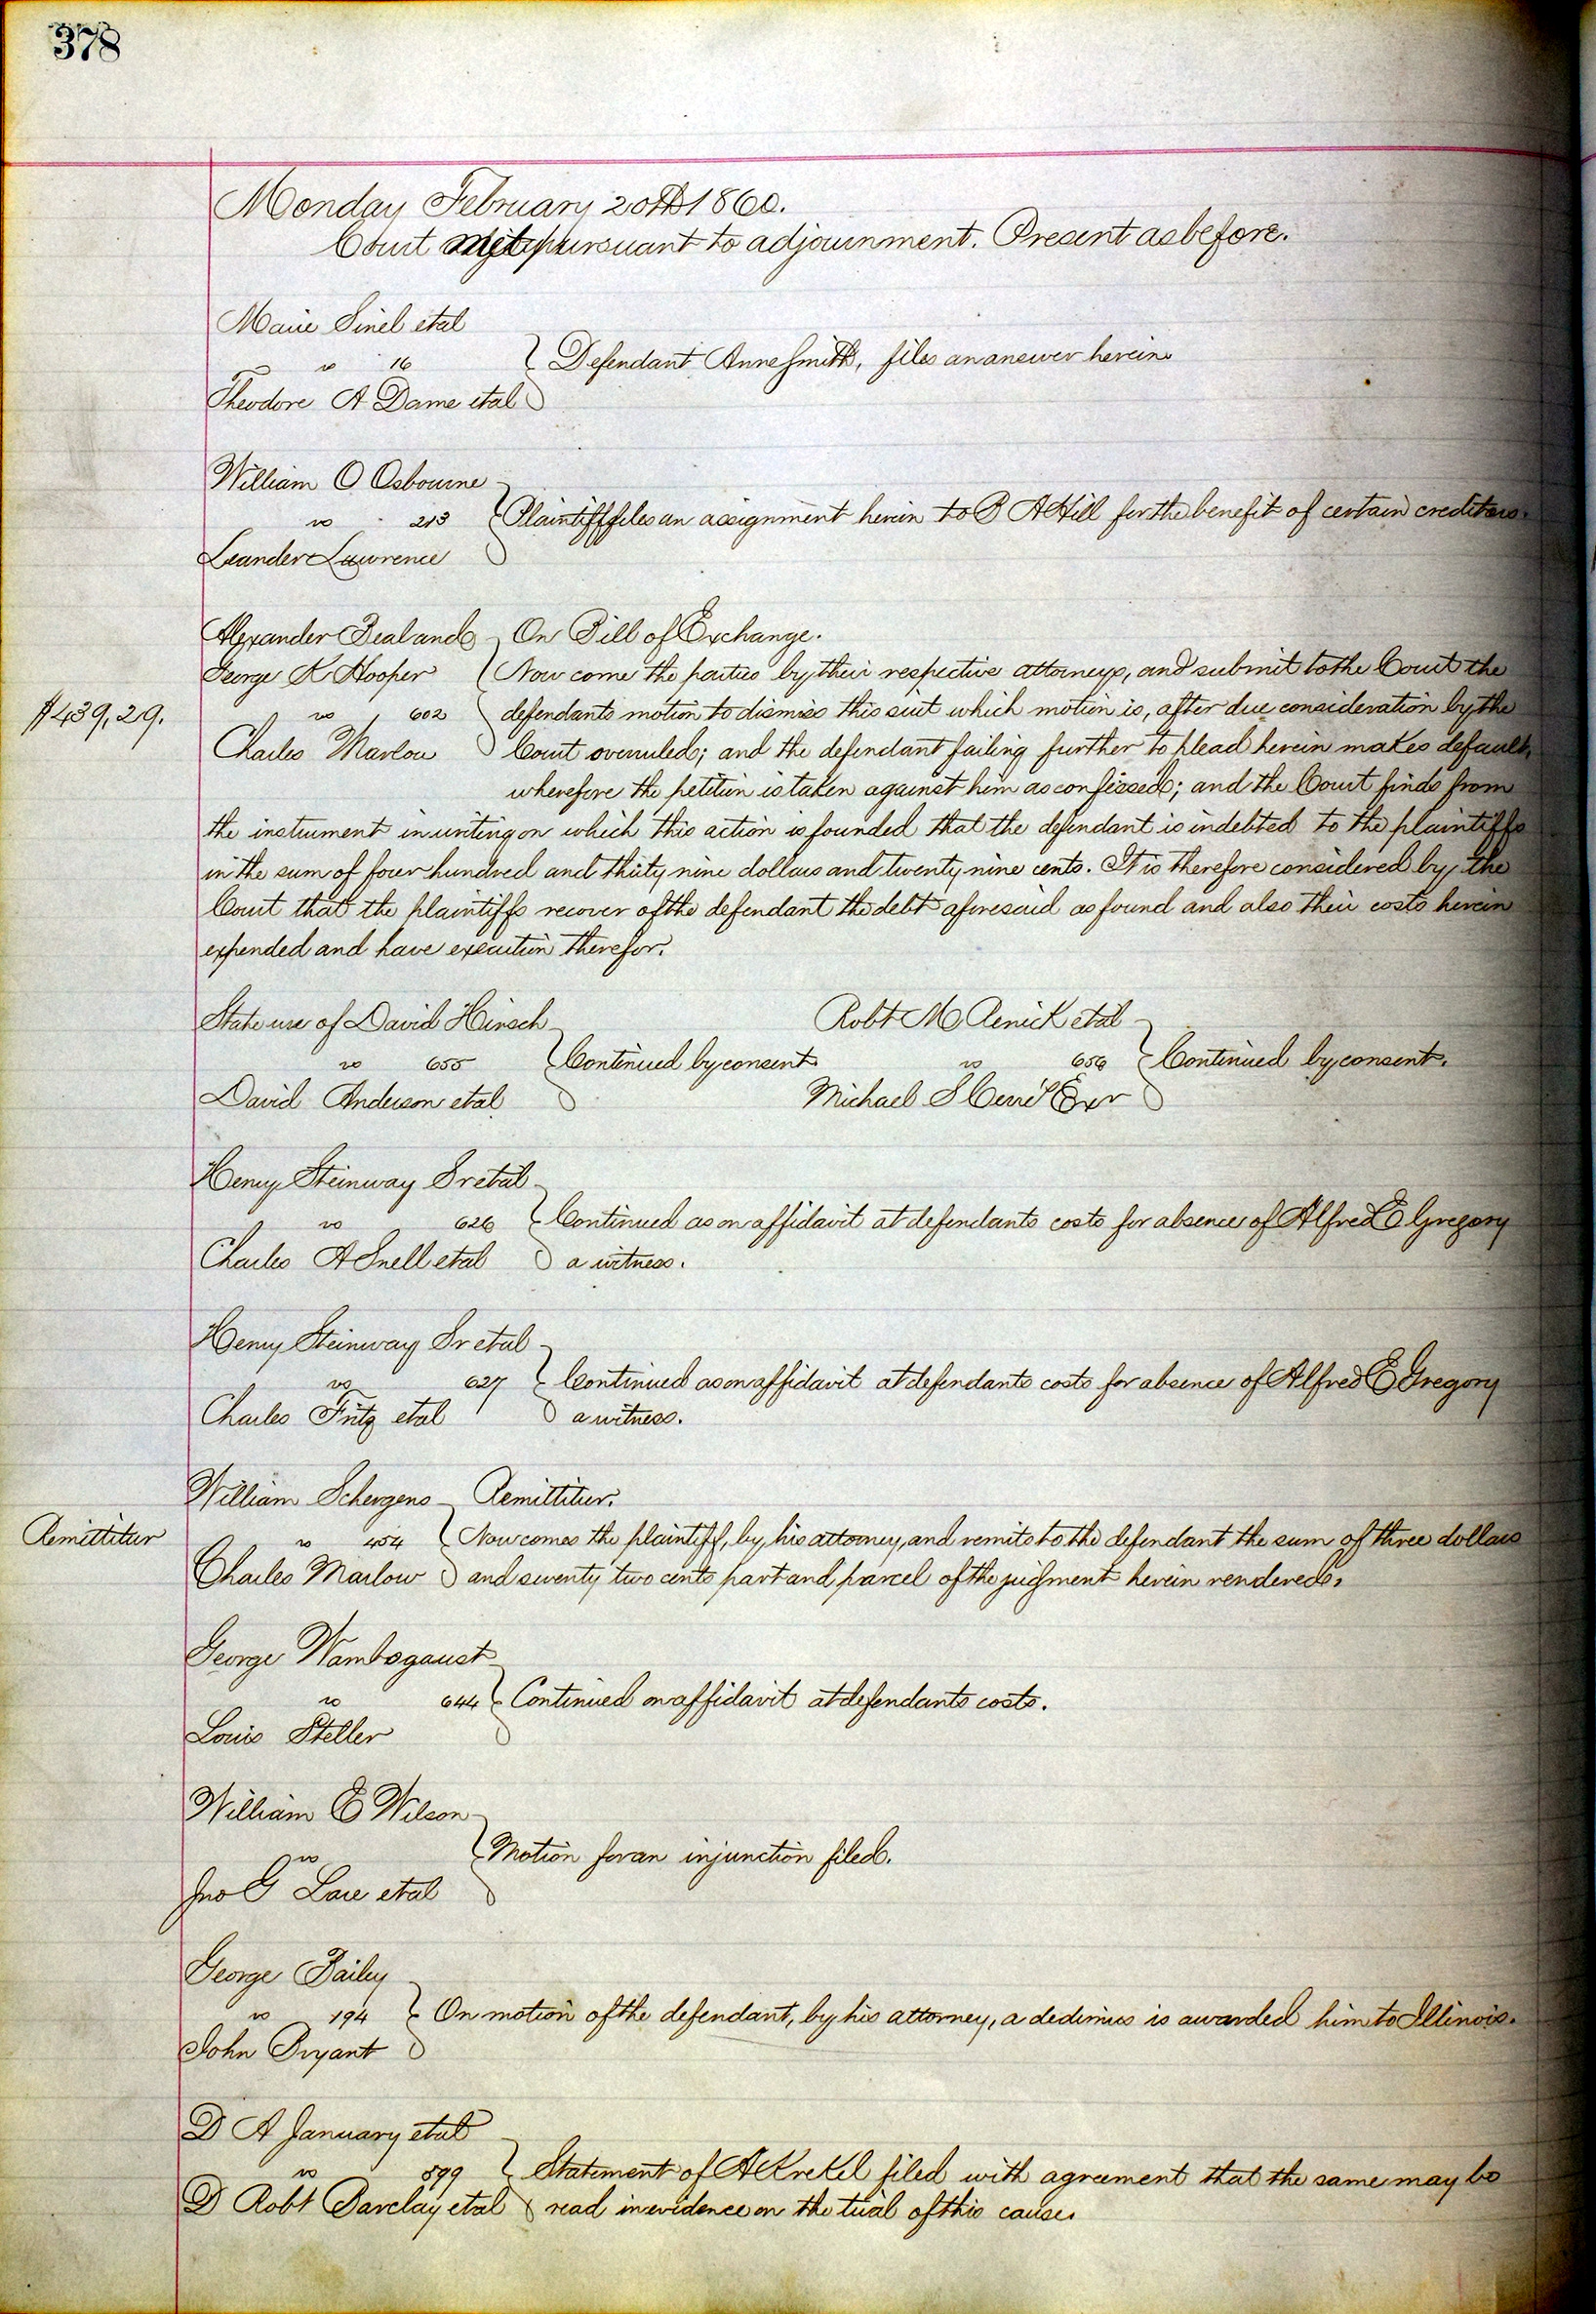 378
Monday February 20th 1860.
Court met pursuant to adjournment. Present as before.
Marie Sinel etal
vs 16
Theodore A Dame etal
Defendant Anne Smith, files an answer herein.
William O Osbourne
vs 213
Leander Lawrence
Plaintiff files an assignment herein to B A Hill for the benefit of certain creditors.
Alexander Bealand
George K Hooper
vs 602
Charles Marlow
$439,29.
On Bill of Exchange.
Now come the parties by their respective attorneys, and submit to the Court the
defendants motion to dismiss this suit which motion is, after due consideration by the
Court overruled; and the defendant failing further to plead herein makes default,
wherefore the petition is taken against him as confessed; and the Court finds from
the instrument in writing on which this action is founded that the defendant is indebted to the plaintiffs
in the sum of four hundred and thirty nine dollars and twenty nine cents. It is therefore considered by the
Court that the plaintiffs recover of the defendant the debt aforesaid as found and also their costs herein
expended and have execution therefor.
State use of David Hirsch
vs 655
David Anderson etal
Continued by consent
Robt M Renick etal
vs 656
Michael S Cerré Exr
Continued by consent.
Henry Steinway Sr etal
vs 626
Charles A Snell etal
Continued as on affidavit at defendants costs for absence of Alfred E Gregory
a witness.
Henry Steinway Sr etal
vs 627
Charles Fritz etal
Continued as on affidavit at defendants costs for absence of Alfred E Gregory
a witness.
Remittitur
William Schergens
vs 454
Charles Marlow
Remittitur.
Now comes the plaintiff, by his attorney, and remits to the defendant the sum of three dollars
and seventy two cents part and parcel of the judgment herein rendered.
George Wambsgaust
vs 644
Louis Steller
Continued on affidavit at defendants costs.
William E Wilson
vs
Jno G Lare etal
Motion for an injunction filed.
George Bailey
vs 194
John Bryant
On motion of the defendant, by his attorney, a dedimus is awarded him to Illinois.
D A January etal
vs 599
D Robt Barclay etal
Statement of A Krekel filed with agreement that the same may be
read in evidence on the trial of this cause.